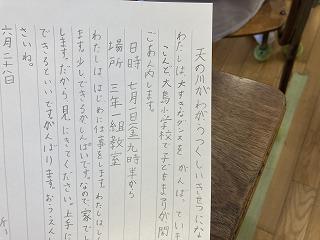 天の川がかがやくうつくしいきせつにな
わたしは、大すきなダンスを がんばっていま
こんど、大島小学校で子どもまつりが開
ごあん内します。
日時 七月一日(金)九時半から
場所 三年一組教室
わたしは、はじめに仕事をします。わたしは、し
ます。少しできるかしんぱいです。なので、家で
します。だから見にきてください。上手に
できるといいですが、がんばります。おうえんし
さいね。
六月二十八日